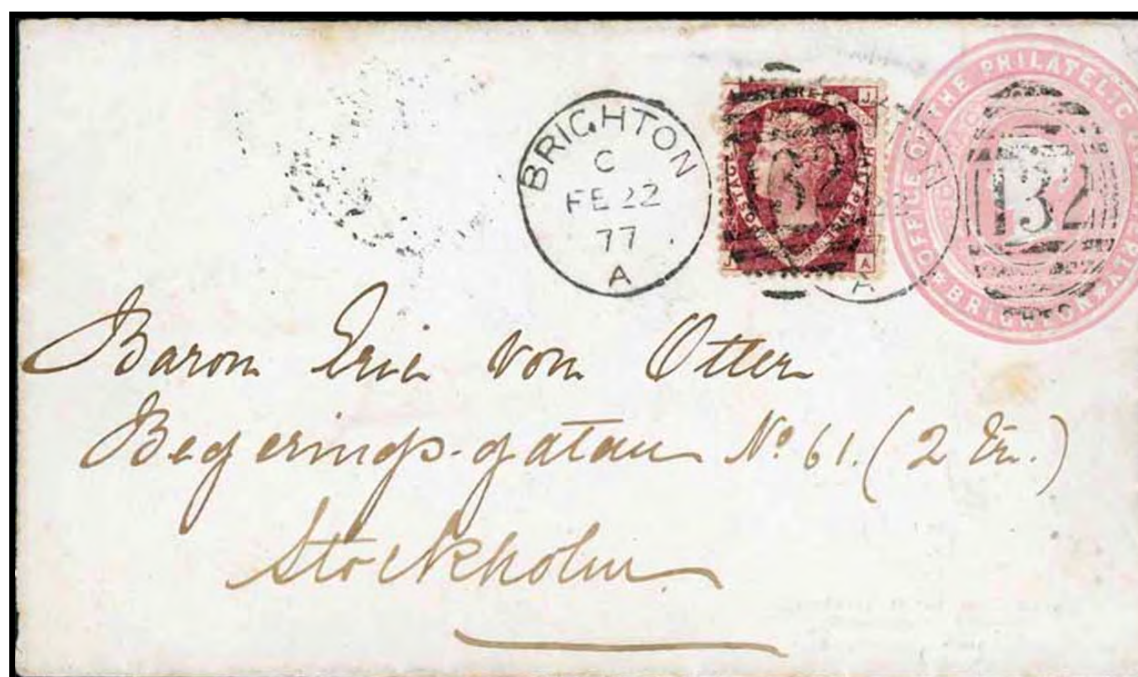 BRIGHTON
C
FE 22
77
A
132
132
OFFICE OF THE PHILATELIC
BRIGHTON
A
Baron Eric von Otter
Begerings-gatan No 61. (2 Tr.)
Stockholm